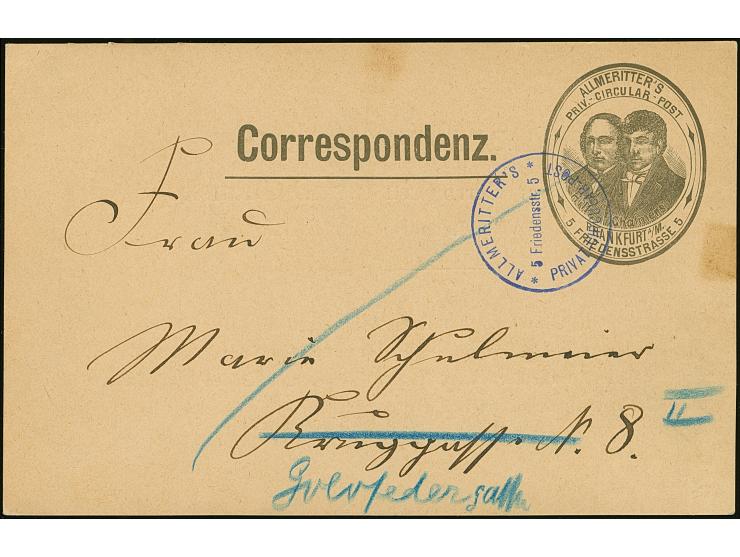 ALLMERITTER'S
PRIV.-CIRCULAR-POST
Correspondenz.
FRANKFURT a/M.
5 FRIEDENSSTRASSE 5
* ALLMERITTER'S *
PRIVAT
5 Friedensstr. 5
Frau
Marie Schulmeier
Kruggasse N. 8. II